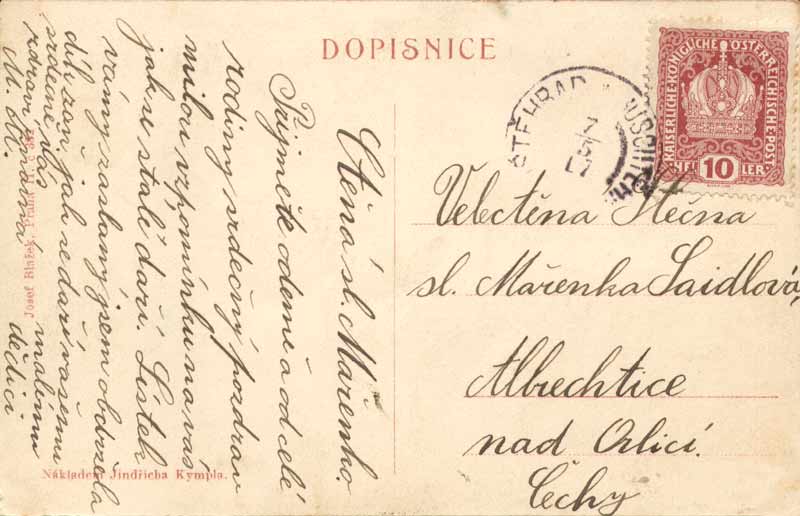 DOPISNICE
KAISERLICHE KÖNIGLICHE ÖSTERREICHISCHE POST
10
HELLER
Velectěna Slečna
sl. Mařenka Saidlová,
Albrechtice
nad Orlicí.
Čechy
Ctěná sl. Mařenko.
Přijměte odemě a od celé
rodiny srdečný pozdrav
milou vzpomínku na vás
jak se stale daří. Lístek
vámy zaslaný jsem obdržela
jak se daří vašemu
malému
dědici
srdečně vás
zdraví
M. M.
Josef Blažek, Praha II.
Nákladem Jindřicha Kympla.